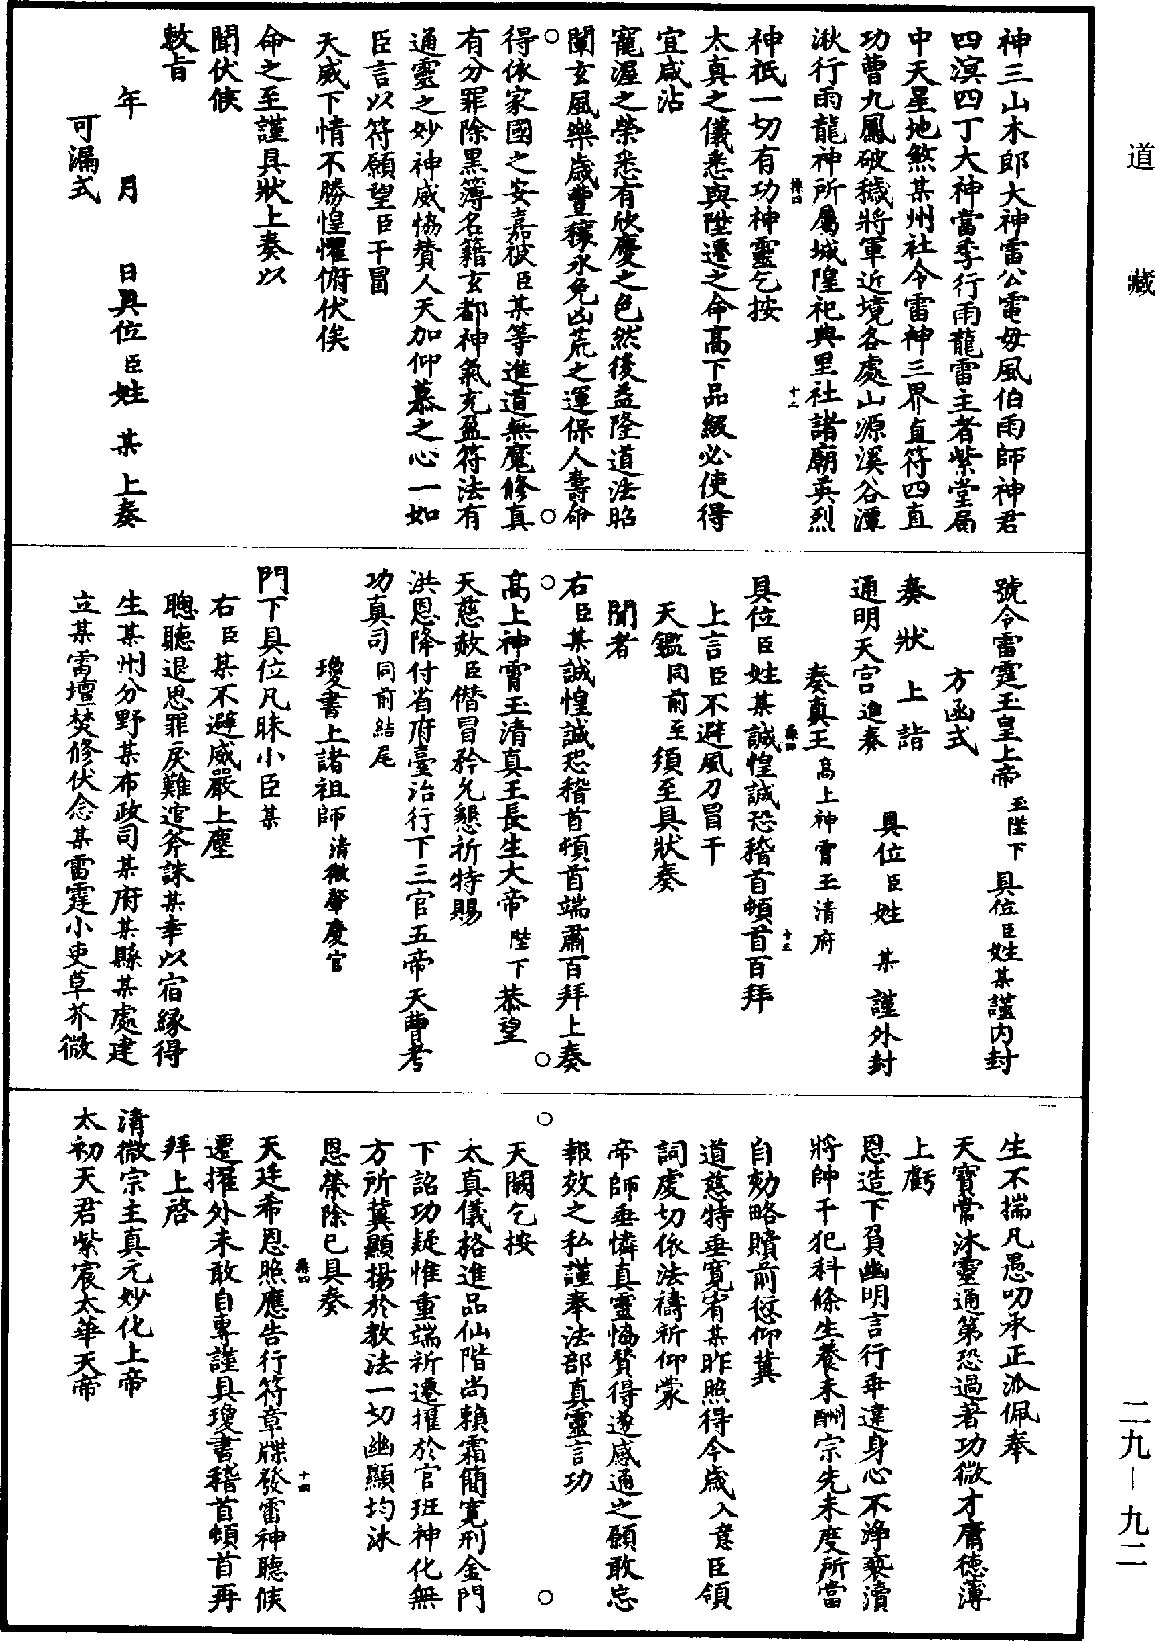 道藏
神三山木郎大神雷公電母風伯雨師神君
四溟四丁大神當季行雨龍雷主者紫堂局
中天星地煞某州社令雷神三界直符四直
功曹九鳳破穢將軍近境各處山源溪谷潭
湫行雨龍神所屬城隍祀典里社諸廟英烈
神祇一切有功神靈乞按
太真之儀悉與陞遷之命高下品級必使得
宜咸沾
寵渥之榮悉有欣慶之色然後益隆道法昭
闡玄風樂歲豐穰永免凶荒之運保人壽命
得依家國之安嘉彼臣某等進道無魔修真
有分罪除黑簿名籍玄都神氣充盈符法有
通靈之妙神威協贊人天加仰慕之心一如
臣言以符願望臣干冒
天威下情不勝惶懼俯伏俟
命之至謹具狀上奏以
聞伏候
敕旨
年 月 日具位臣姓 某 上奏
可漏式
號令雷霆玉皇上帝玉陛下 具位臣姓某謹內封
方函式
奏 狀 上 詣
通明天宮進奏 具位臣姓 某 謹外封
奏真王高上神霄玉清府
具位臣姓某誠惶誠恐稽首頓首百拜
上言臣不避風刀冒干
天鑑同前至須至具狀奏
聞者
右臣某誠惶誠恐稽首頓首端肅百拜上奏
高上神霄玉清真王長生大帝陛下恭望
天慈赦臣僭冒矜允懇祈特賜
洪恩降付省府臺治行下三官五帝天曹考
功真司同前結尾
瓊書上諸祖師清微肇慶官
門下具位凡昧小臣某
右臣某不避威嚴上塵
聰聽退思罪戾難逭斧誅某幸以宿緣得
生某州分野某布政司某府某縣某處建
立某雷壇焚修伏念某雷霆小吏草芥微
生不揣凡愚叨承正派佩奉
天寶常沐靈通第恐過著功微才庸德薄
上虧
恩造下負幽明言行乖違身心不淨褻瀆
將帥干犯科條生養未酬宗先未度所當
自劾略贖前愆仰冀
道慈特垂寬宥某昨照得今歲入意臣領
詞虔切依法禱祈仰蒙
帝師垂憐真靈協贊得遂感通之願敢忘
報效之私謹奉法部真靈言功
天闕乞按
太真儀格進品仙階尚賴霜簡寬刑金門
下詔功疑惟重端祈遷擢於官班神化無
方所冀顯揚於教法一切幽顯均沐
恩榮除已具奏
天廷希恩照應告行符章牒發雷神聽候
遷擢外未敢自專謹具瓊書稽首頓首再
拜上啓
清微宗主真元妙化上帝
太初天君紫宸太華天帝
二九—九二